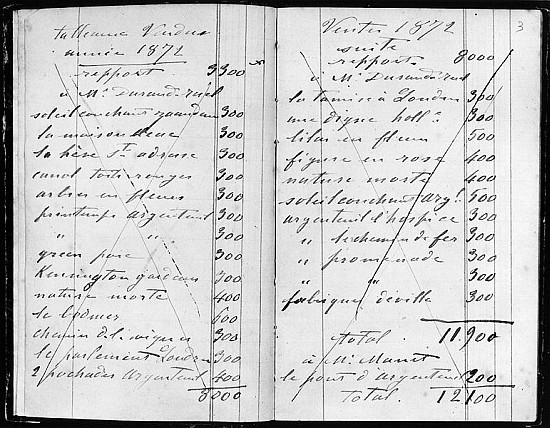 tableaux Vendus
année 1872
report 3300
à Mr Durand ruel
soleil couchant 300
la maison bleue 300
la hève Ste adresse 300
canal toits rouges 300
arbres en fleurs 300
printemps argenteuil 300
" " 300
green parc 300
Kensington gardens 300
nature morte 400
le bodmer 600
chemin de vignes 300
le parlement Londres 300
2 pochades Argenteuil 400
8000
3
Ventes 1872
suite
report 8000
à Mr Durand ruel
la tamise à Londres 300
une digue holl. 300
lilas en fleurs 500
figure en rose 400
nature morte 400
soleil couchant arg. 500
argenteuil l'hospice 300
" le chemin de fer 300
" promenade 300
" 300
fabrique déville 300
total. 11.900
à Mr Manet
le pont d'argenteuil 200
Total. 12100